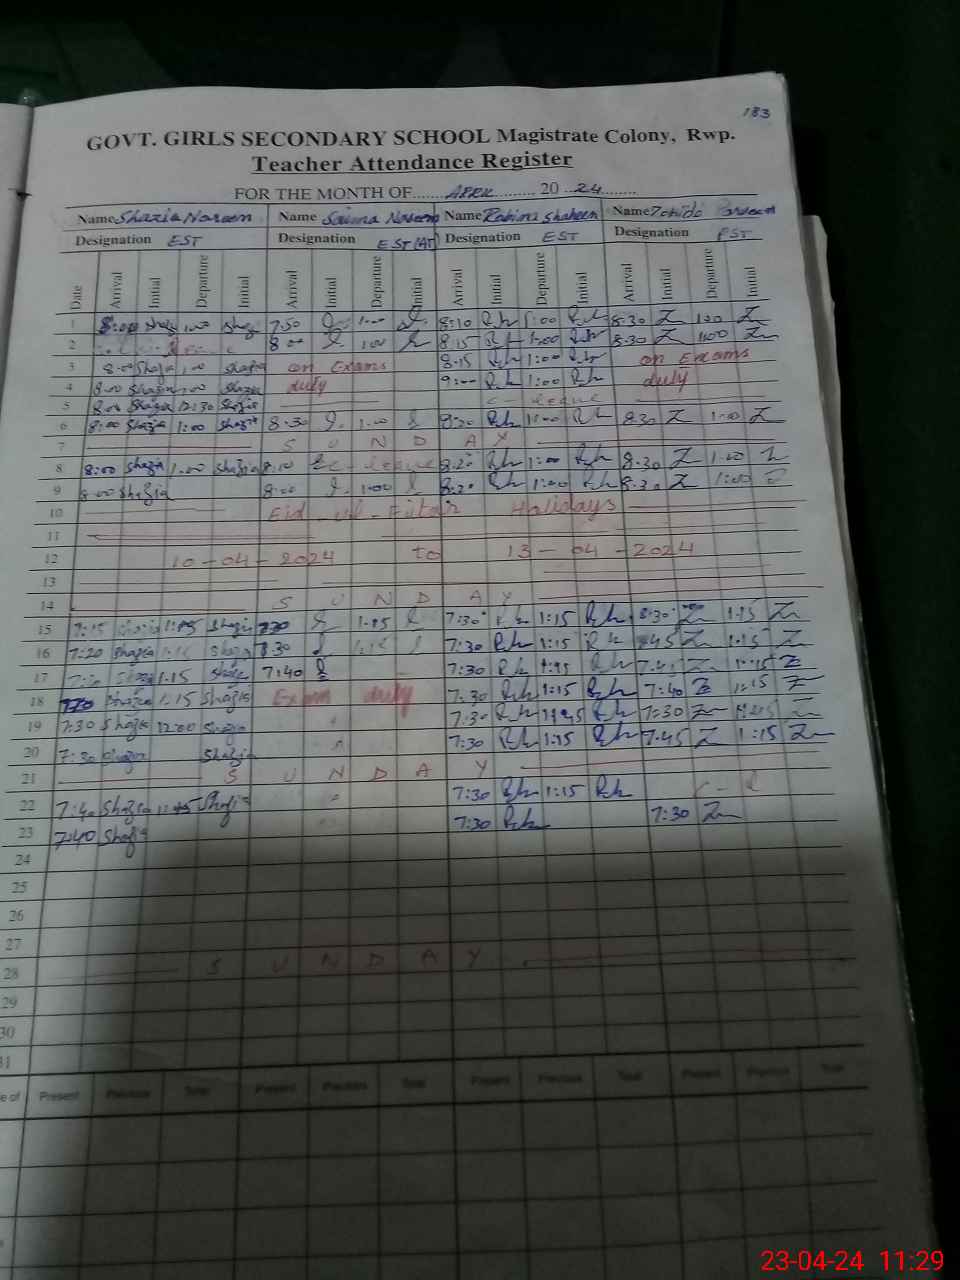 183
GOVT. GIRLS SECONDARY SCHOOL Magistrate Colony, Rwp.
Teacher Attendance Register
FOR THE MONTH OF...... APRIL .......... 20 ..24........
Name Shazia Noreen Name Saima Noreen Name Rabina Shaheen Name Parveen
Designation EST Designation EST (AT) Designation EST Designation PST
Date Arrival Initial Departure Initial Arrival Initial Departure Initial Arrival Initial Departure Initial Arrival Initial Departure Initial
1 8:00 Shaz 1:00 Shaz 7:50 1:00 8:10 Rh 1:00 Rh 8:30 Z 1:00 Z
2 8:00 1:00 8:15 Rh 1:00 Rh 8:30 Z 1:00 Z
3 8:00 Shazia 1:00 Shazia on Exams 8:15 Rh 1:00 Rh on Exams
4 8:00 Shazia 1:00 Shazia duty 9:00 Rh 1:00 Rh duty
5 8:00 Shazia 12:30 Shazia C-leave
6 8:00 Shazia 1:00 Shazia 8:30 1:00 8:20 Rh 1:00 Rh 8:30 Z 1:00 Z
7 S U N D A Y
8 8:00 Shazia 1:00 Shazia 8:10 C-leave 8:20 Rh 1:00 Rh 8:30 Z 1:00 Z
9 8:00 Shazia 8:00 1:00 8:20 Rh 1:00 Rh 8:30 Z 1:00 Z
10 Eid-ul-Fitar Holidays
11
12 10-04-2024 to 13-04-2024
13
14 S U N D A Y
15 7:15 Shazia 1:15 Shazia 7:30 1:15 7:30 Rh 1:15 Rh 8:30 Z 1:15 Z
16 7:20 Shazia 1:15 Shazia 8:30 1:15 7:30 Rh 1:15 Rh 7:45 Z 1:15 Z
17 7:20 Shazia 1:15 Shazia 7:40 7:30 Rh 1:15 Rh 7:45 Z 1:15 Z
18 7:20 Shazia 1:15 Shazia Exam duty 7:30 Rh 1:15 Rh 7:40 Z 1:15 Z
19 7:30 Shazia 12:00 Shazia " 7:30 Rh 1:15 Rh 7:30 Z Z
20 7:30 Shazia Shazia " 7:30 Rh 1:15 Rh 7:45 Z 1:15 Z
21 S U N D A Y
22 7:40 Shazia Shazia " 7:30 Rh 1:15 Rh C-L
23 7:40 Shazia 7:30 Rh 7:30 Z
24
25
26
27
28 S U N D A Y
29
30
31
e of Present Previous Total Present Previous Total Present Previous Total Present Previous Total
23-04-24 11:29